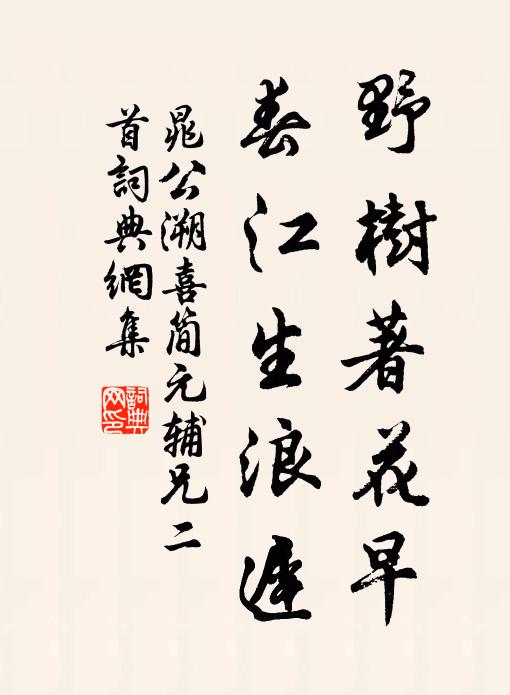 野樹著花早
春江生浪遲
晁公溯喜简元辅兄二
首詞典網集
詞典
网印